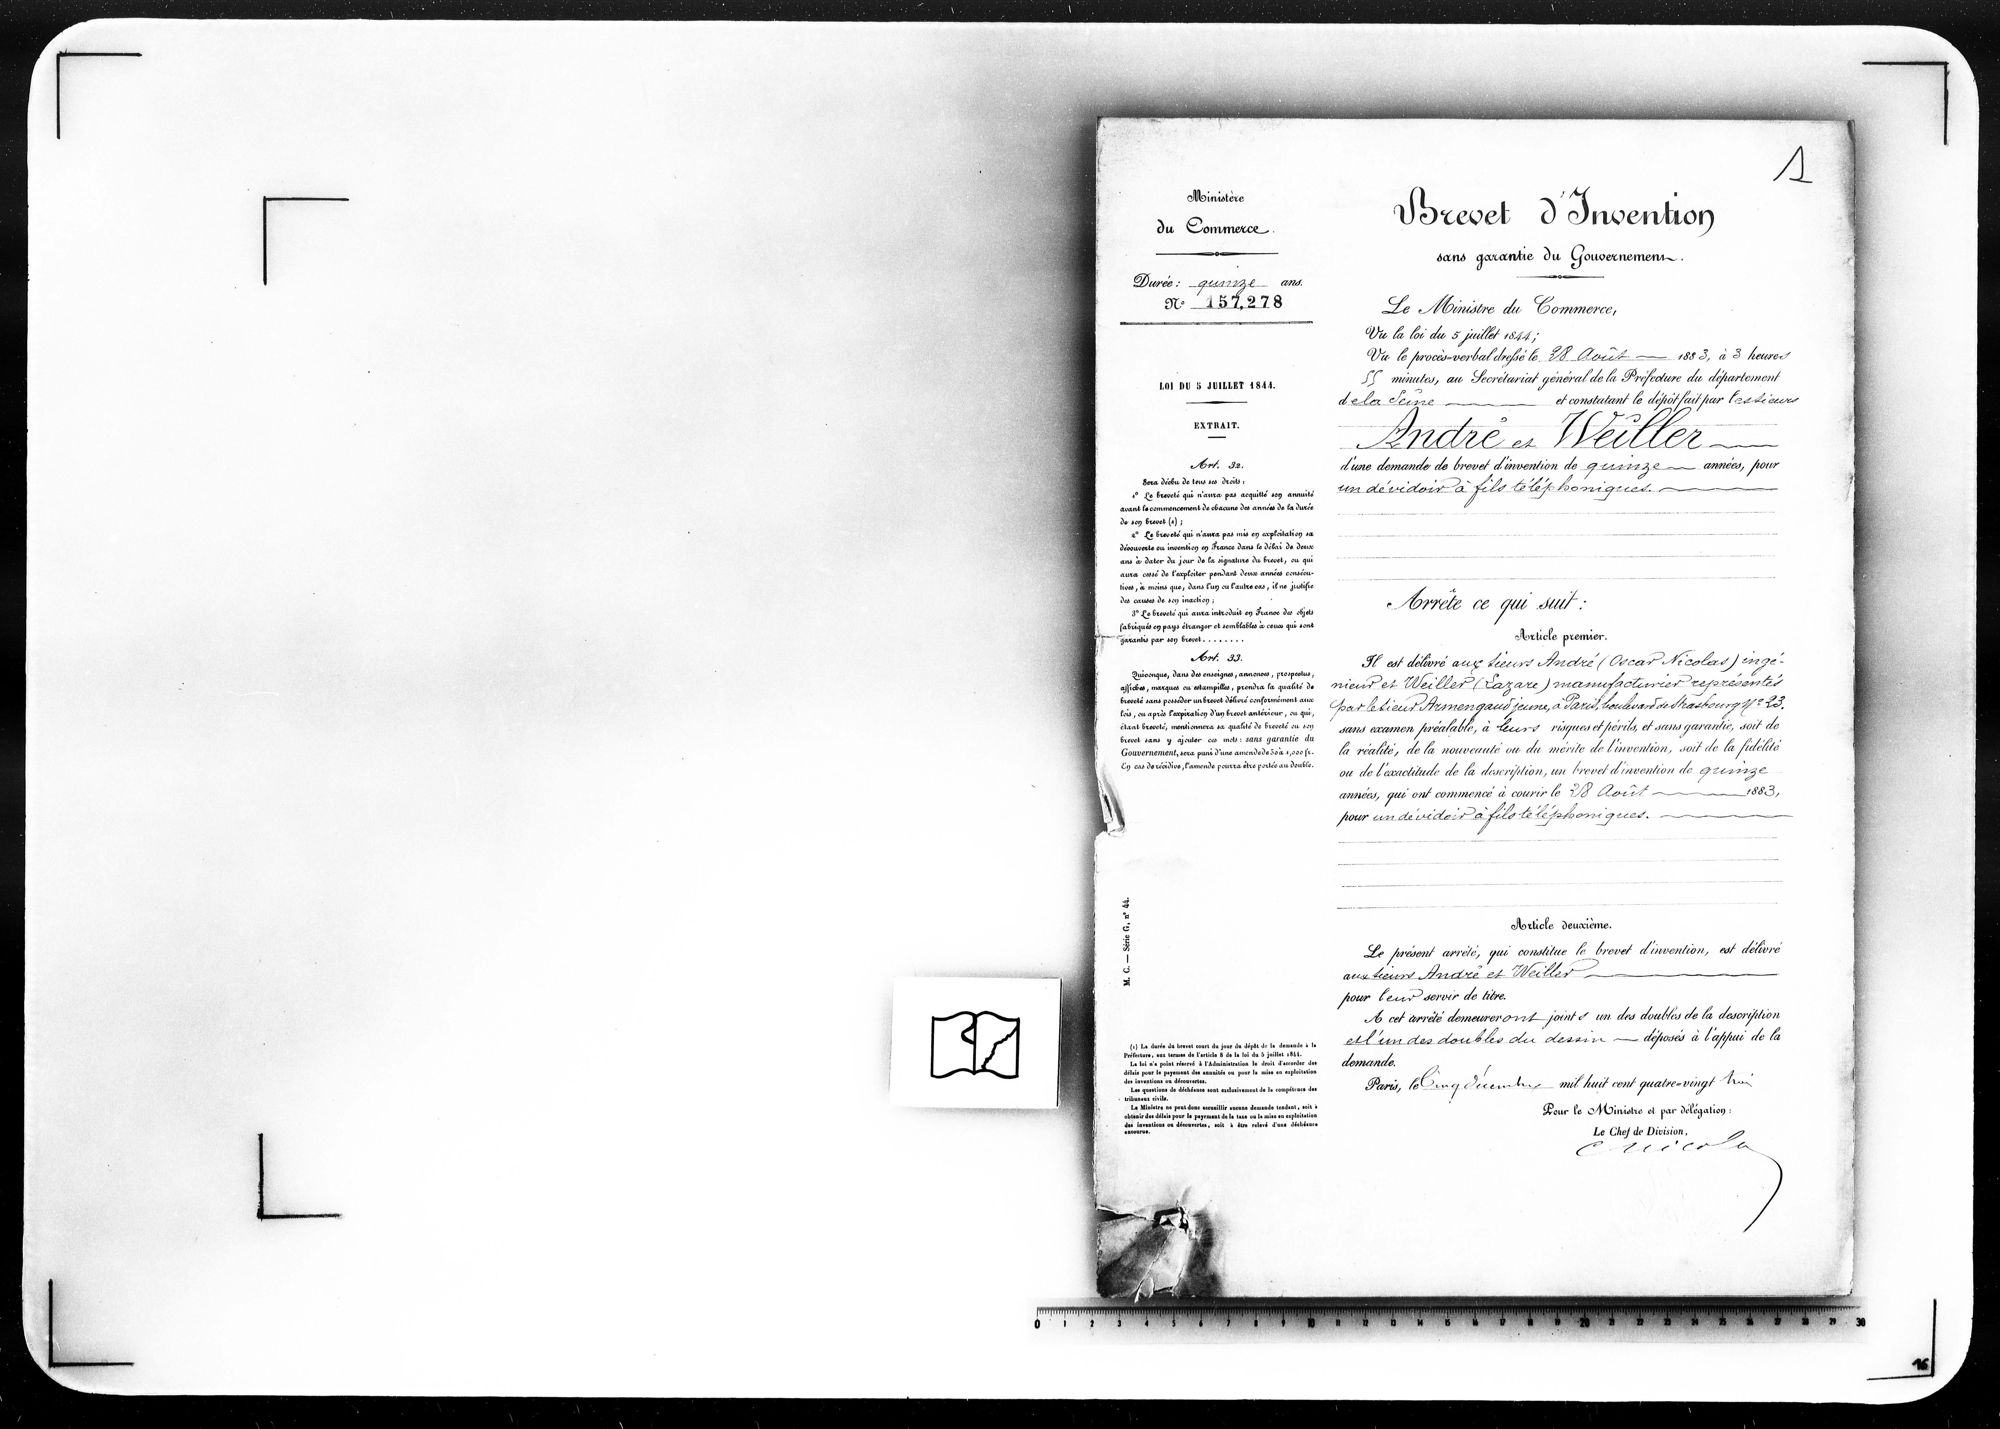 1
Ministère
du Commerce.
Durée: quinze ans.
N° 157,278
LOI DU 5 JUILLET 1844.
EXTRAIT.
Art. 32.
Sera déchu de tous ses droits:
1° Le breveté qui n'aura pas acquitté son annuité
avant le commencement de chacune des années de la durée
de son brevet (1);
2° Le breveté qui n'aura pas mis en exploitation sa
découverte ou invention en France dans le délai de deux
ans à dater du jour de la signature du brevet, ou qui
aura cessé de l'exploiter pendant deux années consécu-
tives, à moins que, dans l'un ou l'autre cas, il ne justifie
des causes de son inaction;
3° Le breveté qui aura introduit en France des objets
fabriqués en pays étranger et semblables à ceux qui sont
garantis par son brevet........
Art. 33.
Quiconque, dans des enseignes, annonces, prospectus,
affiches, marques ou estampilles, prendra la qualité de
breveté sans posséder un brevet délivré conformément aux
lois, ou après l'expiration d'un brevet antérieur, ou qui,
étant breveté, mentionnera sa qualité de breveté ou son
brevet sans y ajouter ces mots: sans garantie du
Gouvernement, sera puni d'une amende de 50 à 1,000 fr.
En cas de récidive, l'amende pourra être portée au double.
M. C. — Série G, n° 44.
(1) La durée du brevet court du jour du dépôt de la demande à la
Préfecture, aux termes de l'article 8 de la loi du 5 juillet 1844.
La loi n'a point réservé à l'Administration le droit d'accorder des
délais pour le payement des annuités ou pour la mise en exploitation
des inventions ou découvertes.
Les questions de déchéance sont exclusivement de la compétence des
tribunaux civils.
Le Ministre ne peut donc accueillir aucune demande tendant, soit à
obtenir des délais pour le payement de la taxe ou la mise en exploitation
des inventions ou découvertes, soit à être relevé d'une déchéance
encourue.
Brevet d'Invention
sans garantie du Gouvernement.
Le Ministre du Commerce,
Vu la loi du 5 juillet 1844;
Vu le procès-verbal dressé le 28 Août 1883, à 3 heures
55 minutes, au Secrétariat général de la Préfecture du département
de la Seine et constatant le dépôt fait par les sieurs
André et Weiller
d'une demande de brevet d'invention de quinze années, pour
un dévidoir à fils téléphoniques.
Arrête ce qui suit:
Article premier.
Il est délivré aux sieurs André (Oscar Nicolas) ingé-
nieur et Weiller (Lazare) manufacturier représentés
par le sieur Armengaud jeune, à Paris, boulevard de Strasbourg N° 23.
sans examen préalable, à leurs risques et périls, et sans garantie, soit de
la réalité, de la nouveauté ou du mérite de l'invention, soit de la fidélité
ou de l'exactitude de la description, un brevet d'invention de quinze
années, qui ont commencé à courir le 28 Août 1883,
pour un dévidoir à fils téléphoniques.
Article deuxième.
Le présent arrêté, qui constitue le brevet d'invention, est délivré
aux sieurs André et Weiller
pour leur servir de titre.
A cet arrêté demeureront joints un des doubles de la description
et l'un des doubles du dessin déposés à l'appui de la
demande.
Paris, le Cinq décembre mil huit cent quatre-vingt trois
Pour le Ministre et par délégation:
Le Chef de Division,
0 1 2 3 4 5 6 7 8 9 10 11 12 13 14 15 16 17 18 19 20 21 22 23 24 25 26 27 28 29 30
16